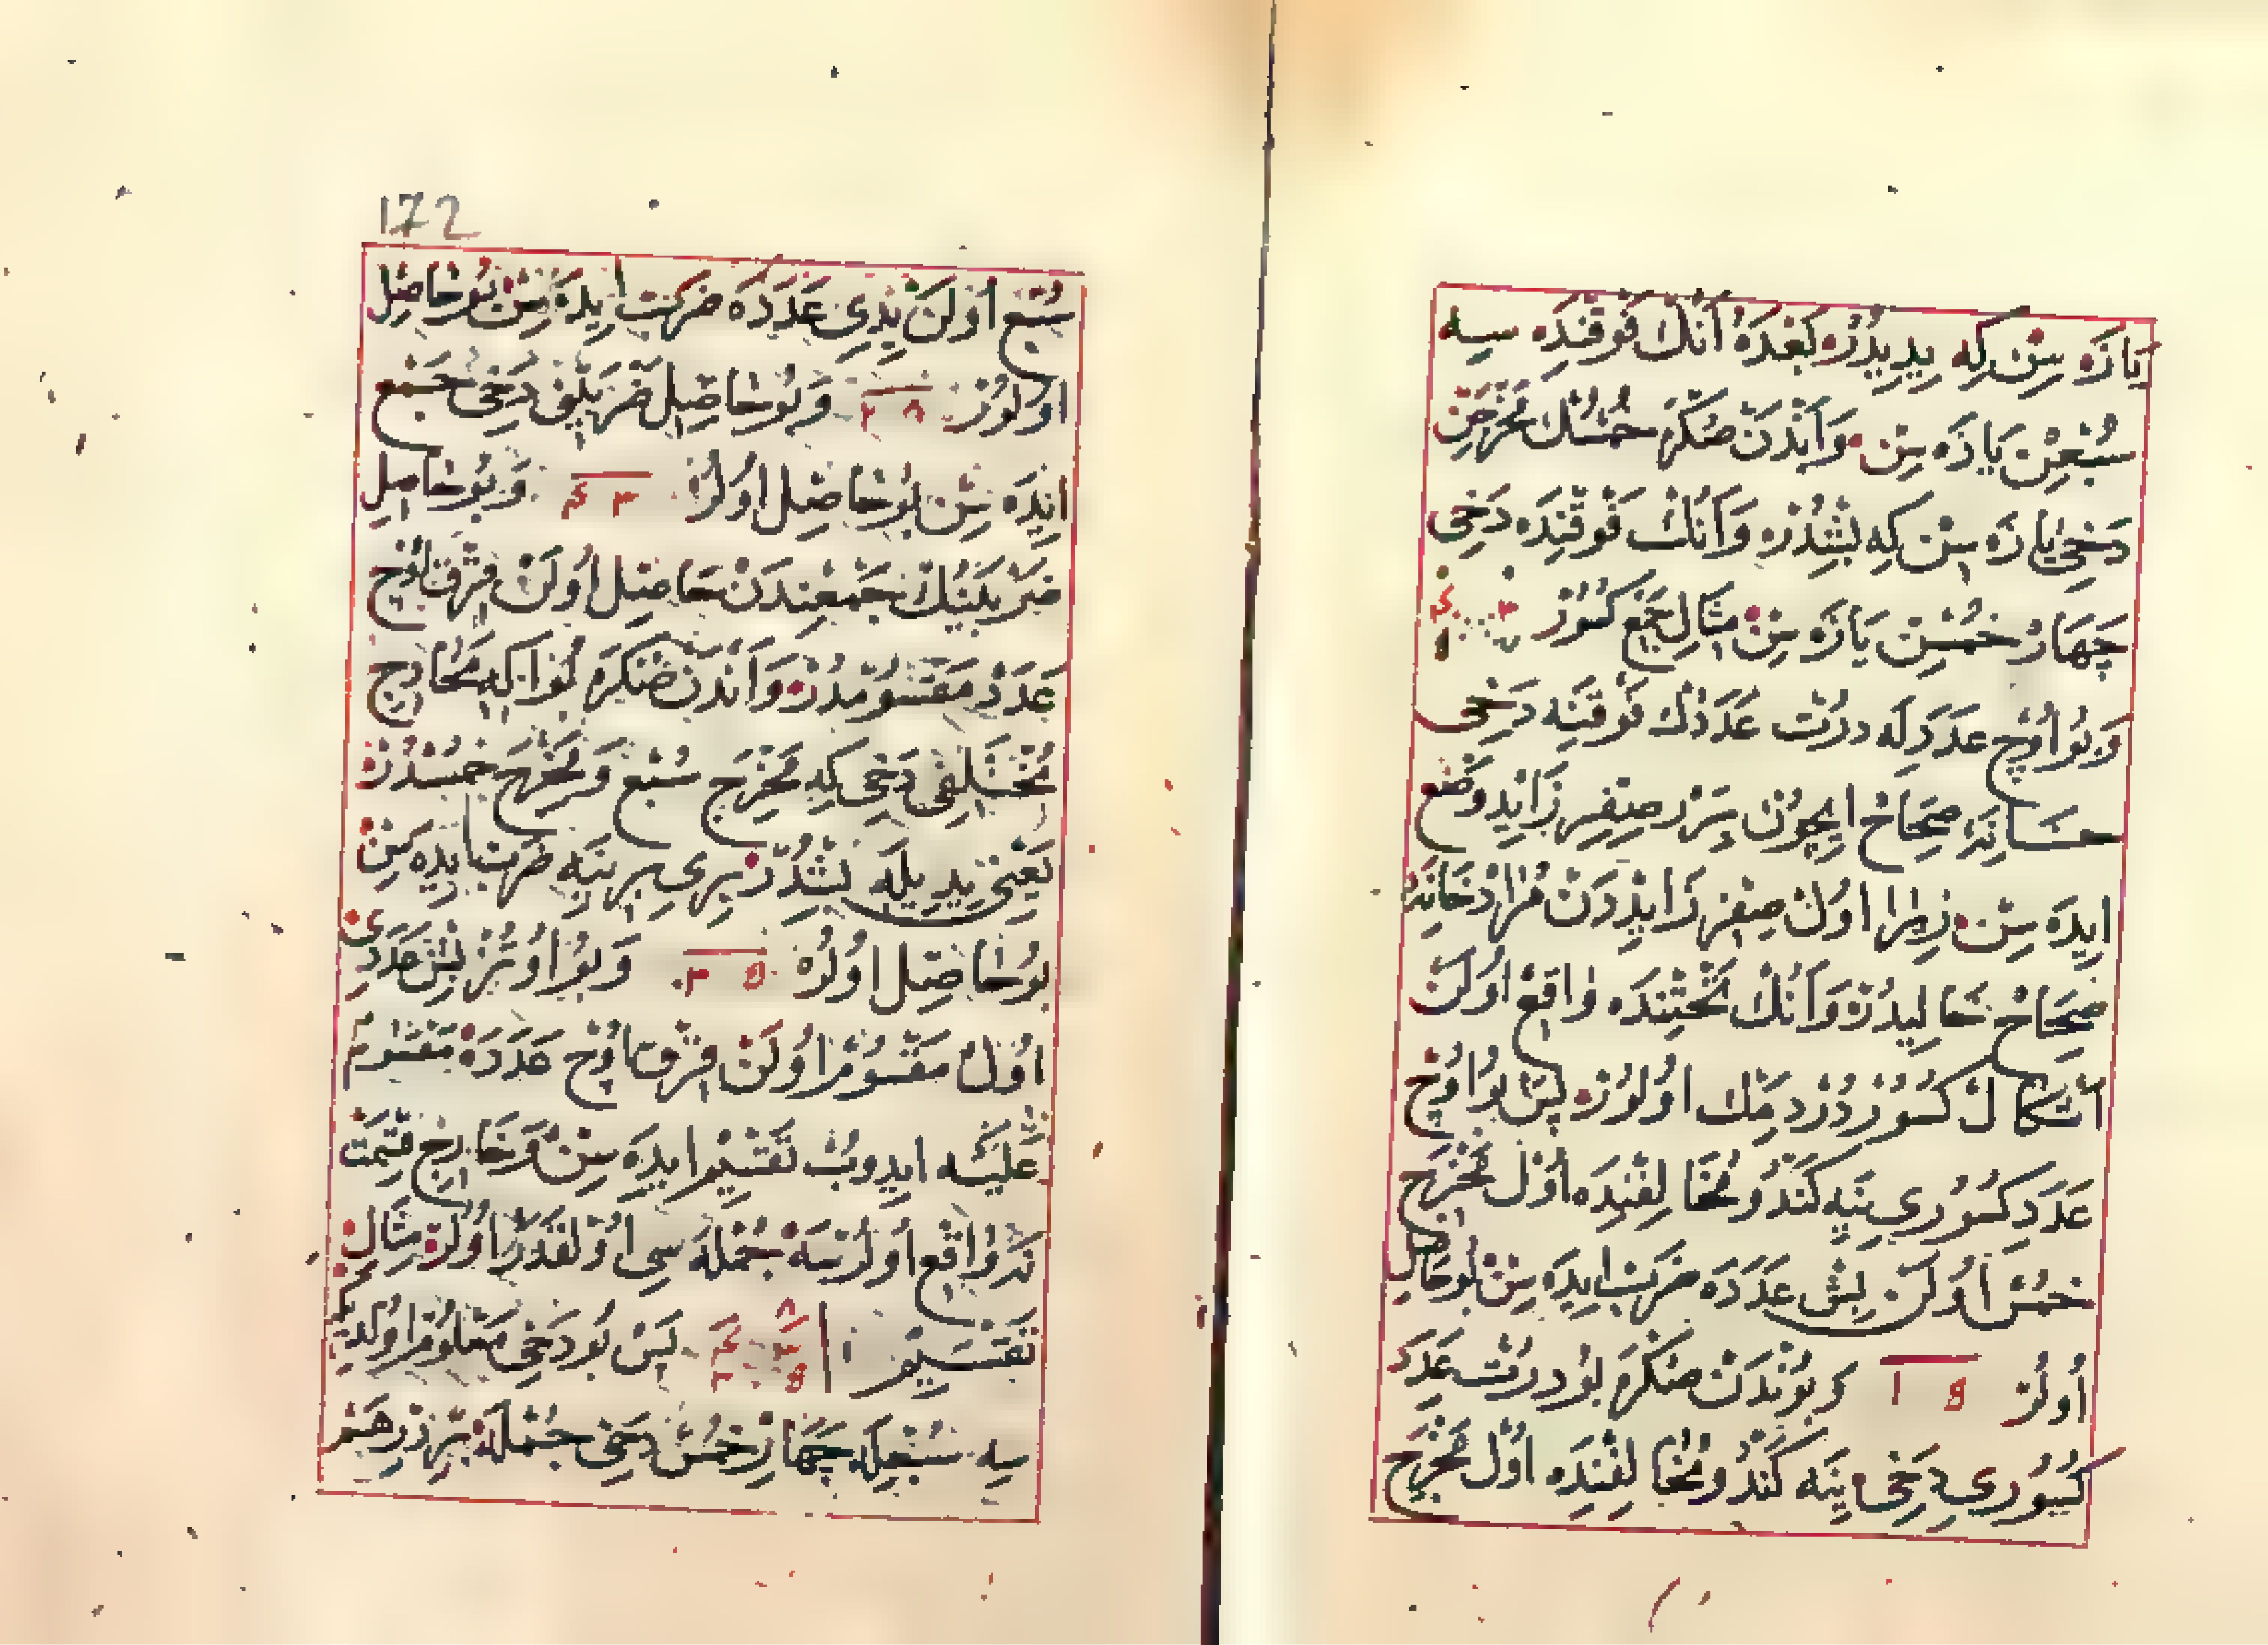 يَازَه سِن كه يدِيدُرْ وَبَعْدَهُ اَنُكْ فَوْقِنْدَه سه
سُبْعِنْ يَازَه سِن وَاَنْدَنْ صَكْرَه خُمْسُكْ مَخْرَجِنْ
دَخِى يَازَه سِنْ كِه بَشْدُرْ وَاَنُكْ فَوْقِنْدَه دَخِى
چَهَارْ خُمْسِن يَازَه سِنْ مِثَالِ جَمْعِ كُسُورْ ٣ ٤
وَبُو اوُچ عَدَدِلَه دُرْت عَدَدُكْ فَوْقِنَه دَخِى
خَانَهْ صِحَاحْ ايچُونْ بِرَرْ صِفِرِ زَائِدِ وَضْع
ايدَه سِن زِيرَا اوُلْ صِفْرِ زَائِدْدَنْ مُرَادْ خَانَهءِ
صِحَاحْ خَالِيدُرْ وَاَنُكْ تَحْتِنْدَه وَاقِعْ اوُلَنْ
اَشْكَالْ كُسُورْدُرْ دِمَكْ اوُلُورْ پَسْ بُو اوُچ
عَدَدِ كُسُورِى يِنَه كَنْدُو مُخَالِفِنْدَه اوُلْ مَخْرَج
خُمْسْ اوُلَنْ بَشْ عَدَدَه ضَرْب ايدَه سِنْ بُو حَاصِل
اوُلُرْ ١٥ وَبُونْدَنْ صَكْرَه بُو دُرْت عَدَد
كُسُورِى دَخِى يِنَه كَنْدُو مُخَالِفِنْدَه اوُلْ مَخْرَج
172
سُبْع اوُلَنْ يَدِى عَدَدَه ضَرْب ايدَه سِنْ بُو حَاصِل
اوُلُورْ ٢٨ وَبُو حَاصِلِ ضَرْبَيْنِ دَخِى جَمْع
ايدَه سِنْ بُو حَاصِل اوُلُرْ ٤٣ وَبُو حَاصِل
ضَرْبَيْنُكْ جَمْعِنْدَنْ حَاصِل اوُلَنْ قِرْقْ اوُچ
عَدَدْ مَقْسُومْدُرْ وَاَنْدَنْ صَكْرَه بُو ايكِه مَخَارِجِ
مُخْتَلِفِى دَخِى كِه مَخْرَجِ سُبْع وَمَخْرَجِ خُمْسْدُرْ
يَعْنِى يدِيلَه بَشْدُرْ بِرِى بِرِينَه ضَرْب ايدَه سِنْ
بُو حَاصِل اوُلُرْ ٣٥ وَبُو اوُتُزْ بَشْ عَدَدِى
اوُلْ مَقْسُومْ اوُلَنْ قِرْقْ اوُچ عَدَدَه مَقْسُومٌ
عَلَيْه ايدوبْ تَقْسِيمْ ايدَه سِنْ وَخَارِجِ قِسْمَتْ
نَه وَاقِعْ اوُلُرْسَه جُمْلَه سِى اوُلْقَدَرْ اوُلُرْ مِثَالِ
تَقْسِيمْ ١ ٨ ٤٣ ٣٥ پَسْ بُو دَخِى مَعْلُومْ اوُلدِى كِه
سِه سُبْعِلَه چَهَارْ خُمْسْ دَخِى جُمْلَه بِرْ دِرْهَمْ